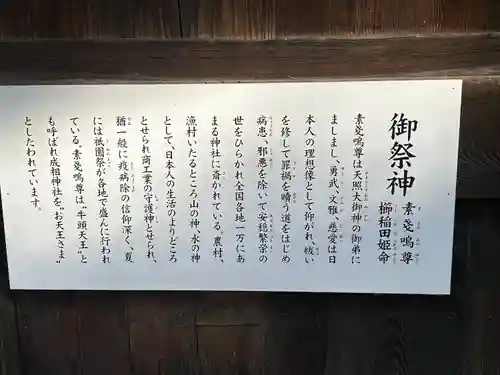 御祭神
素戔鳴尊
櫛稲田姫命
素戔鳴尊は天照大御神の御弟に
ましまし、勇武、文雅、慈愛は日
本人の理想像として仰がれ、祓い
を修して罪禍を贖う道をはじめ
病患、邪悪を除いて安穏繁栄の
世をひらかれ全国各地一万にあ
まる神社に斎かれている。農村、
漁村いたるところ山の神、水の神
として、日本人の生活のよりどころ
とせられ商工業の守護神とせられ、
猶一般に疫病除の信仰深く、夏
には祇園祭が各地で盛んに行われ
ている。素戔鳴尊は〝牛頭天王〟と
も呼ばれ成相神社を、〝お天王さま〟
としたわれています。